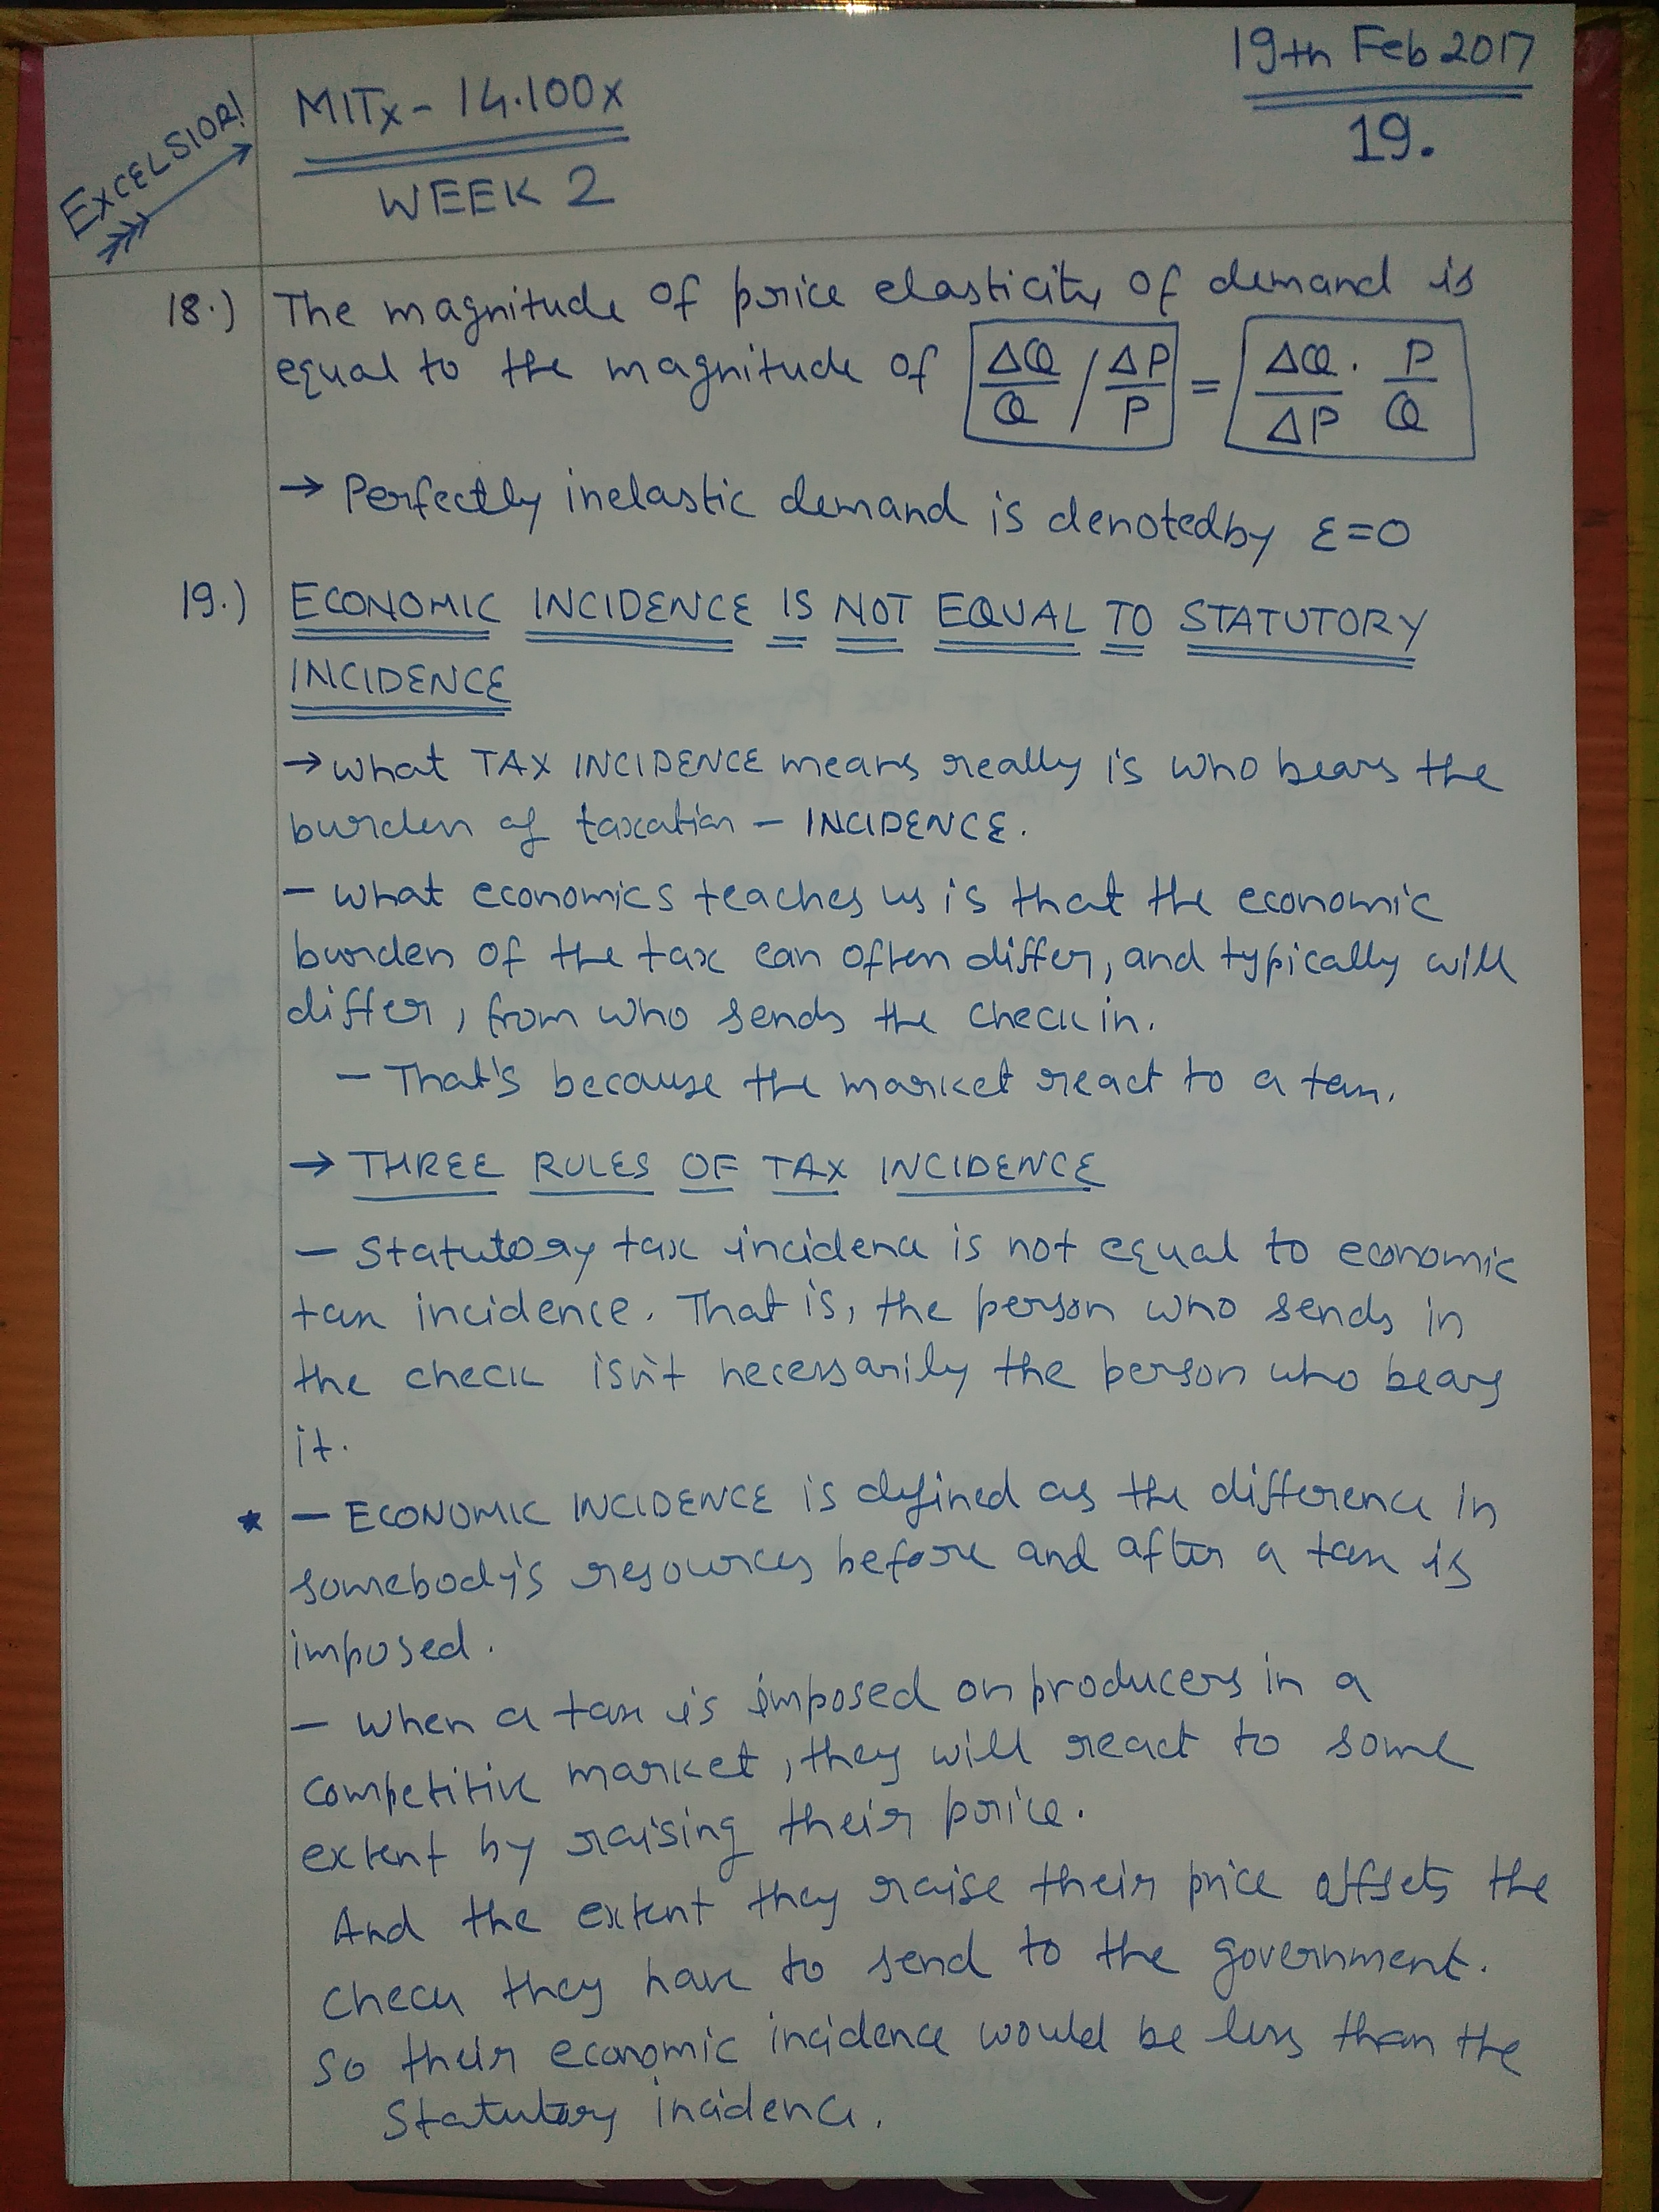 EXCELSIOR!
MITx - 14.100x
WEEK 2
19th Feb 2017
19.
18.) The magnitude of price elasticity of demand is
equal to the magnitude of ΔQ/Q / ΔP/P = ΔQ/ΔP . P/Q
→ Perfectly inelastic demand is denoted by ε=0
19.) ECONOMIC INCIDENCE IS NOT EQUAL TO STATUTORY
INCIDENCE
→ What TAX INCIDENCE means really is who bears the
burden of taxation – INCIDENCE.
– What economics teaches us is that the economic
burden of the tax can often differ, and typically will
differ, from who sends the check in.
– That's because the market react to a tax.
→ THREE RULES OF TAX INCIDENCE
– Statutory tax incidence is not equal to economic
tax incidence. That is, the person who sends in
the check isn't necessarily the person who bears
it.
★ – ECONOMIC INCIDENCE is defined as the difference in
somebody's resources before and after a tax is
imposed.
– When a tax is imposed on producers in a
competitive market, they will react to some
extent by raising their price.
And the extent they raise their price offsets the
check they have to send to the government.
So their economic incidence would be less than the
Statutory incidence.